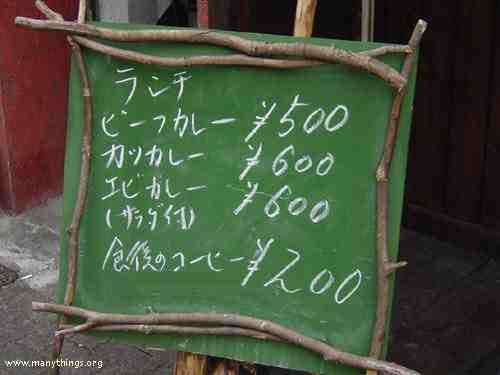 ランチ
ビーフカレー ¥500
カツカレー ¥600
エビカレー ¥600
(サラダ付)
食後のコーヒー ¥200
www.manythings.org